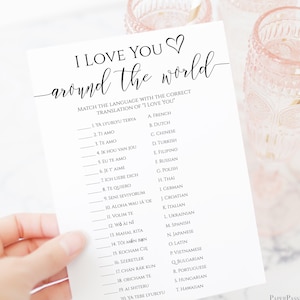 I LOVE YOU
around the world
MATCH THE LANGUAGE WITH THE CORRECT
TRANSLATION OF "I LOVE YOU"
1. YA LYUBLYU TEBYA
2. TI AMO
3. TE AMO
4. IK HOU VAN JOU
5. EU TE AMO
6. JE T'AIME
7. ICH LIEBE DICH
8. TE QUIERO
9. SENI SEVIYORUM
10. ALOHA WAU IA 'OE
11. VOLIM TE
12. WO AI NI
13. MAHAL KITA
14.
15. KOCHAM CIĘ
16. SZERETLEK
17. CHAN RAK KUN
18. OBICHAM TE
19. ANH YEU EM
20. YA TEBE LYUBLYU
A. FRENCH
B. DUTCH
C. CHINESE
D. TURKISH
E. FILIPINO
F. RUSSIAN
G. POLISH
H. THAI
I. GERMAN
J. CROATIAN
K. ITALIAN
L. UKRAINIAN
M. SPANISH
N. JAPANESE
O. LATIN
P. VIETNAMESE
Q. BULGARIAN
R. PORTUGUESE
S. HUNGARIAN
T. HAWAIIAN